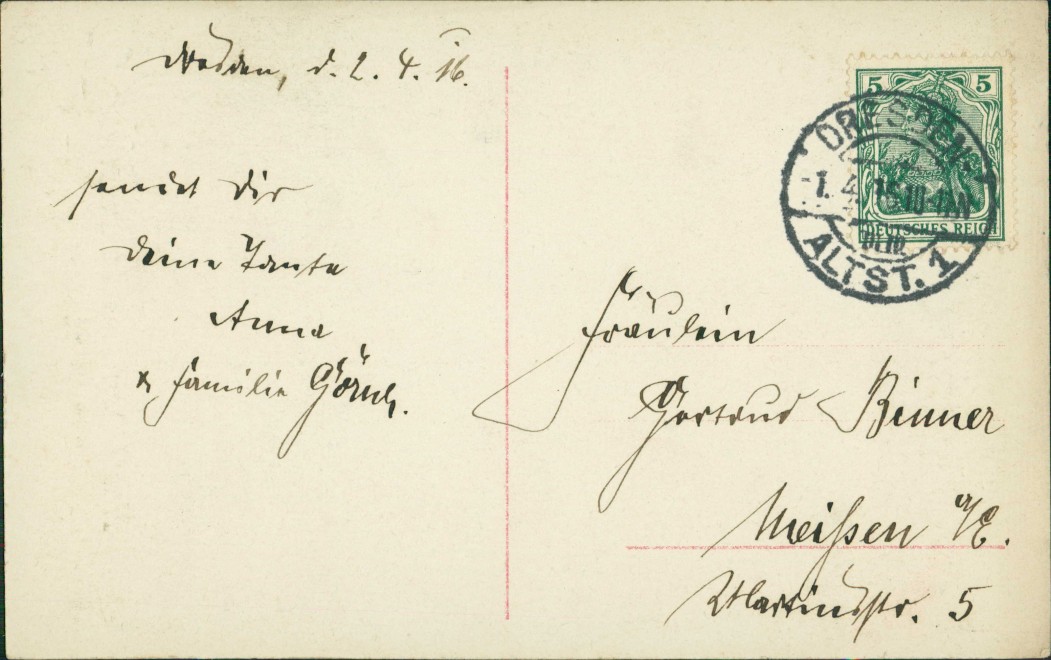 Dresden, d. 2. 4. 16.
sendet Dir
Deine Tante
Anna
Familie
5 5
DEUTSCHES REICH
DRESDEN
ALTST. 1
Fräulein
Gertrud Binner
Meißen a/E.
Martinstr. 5